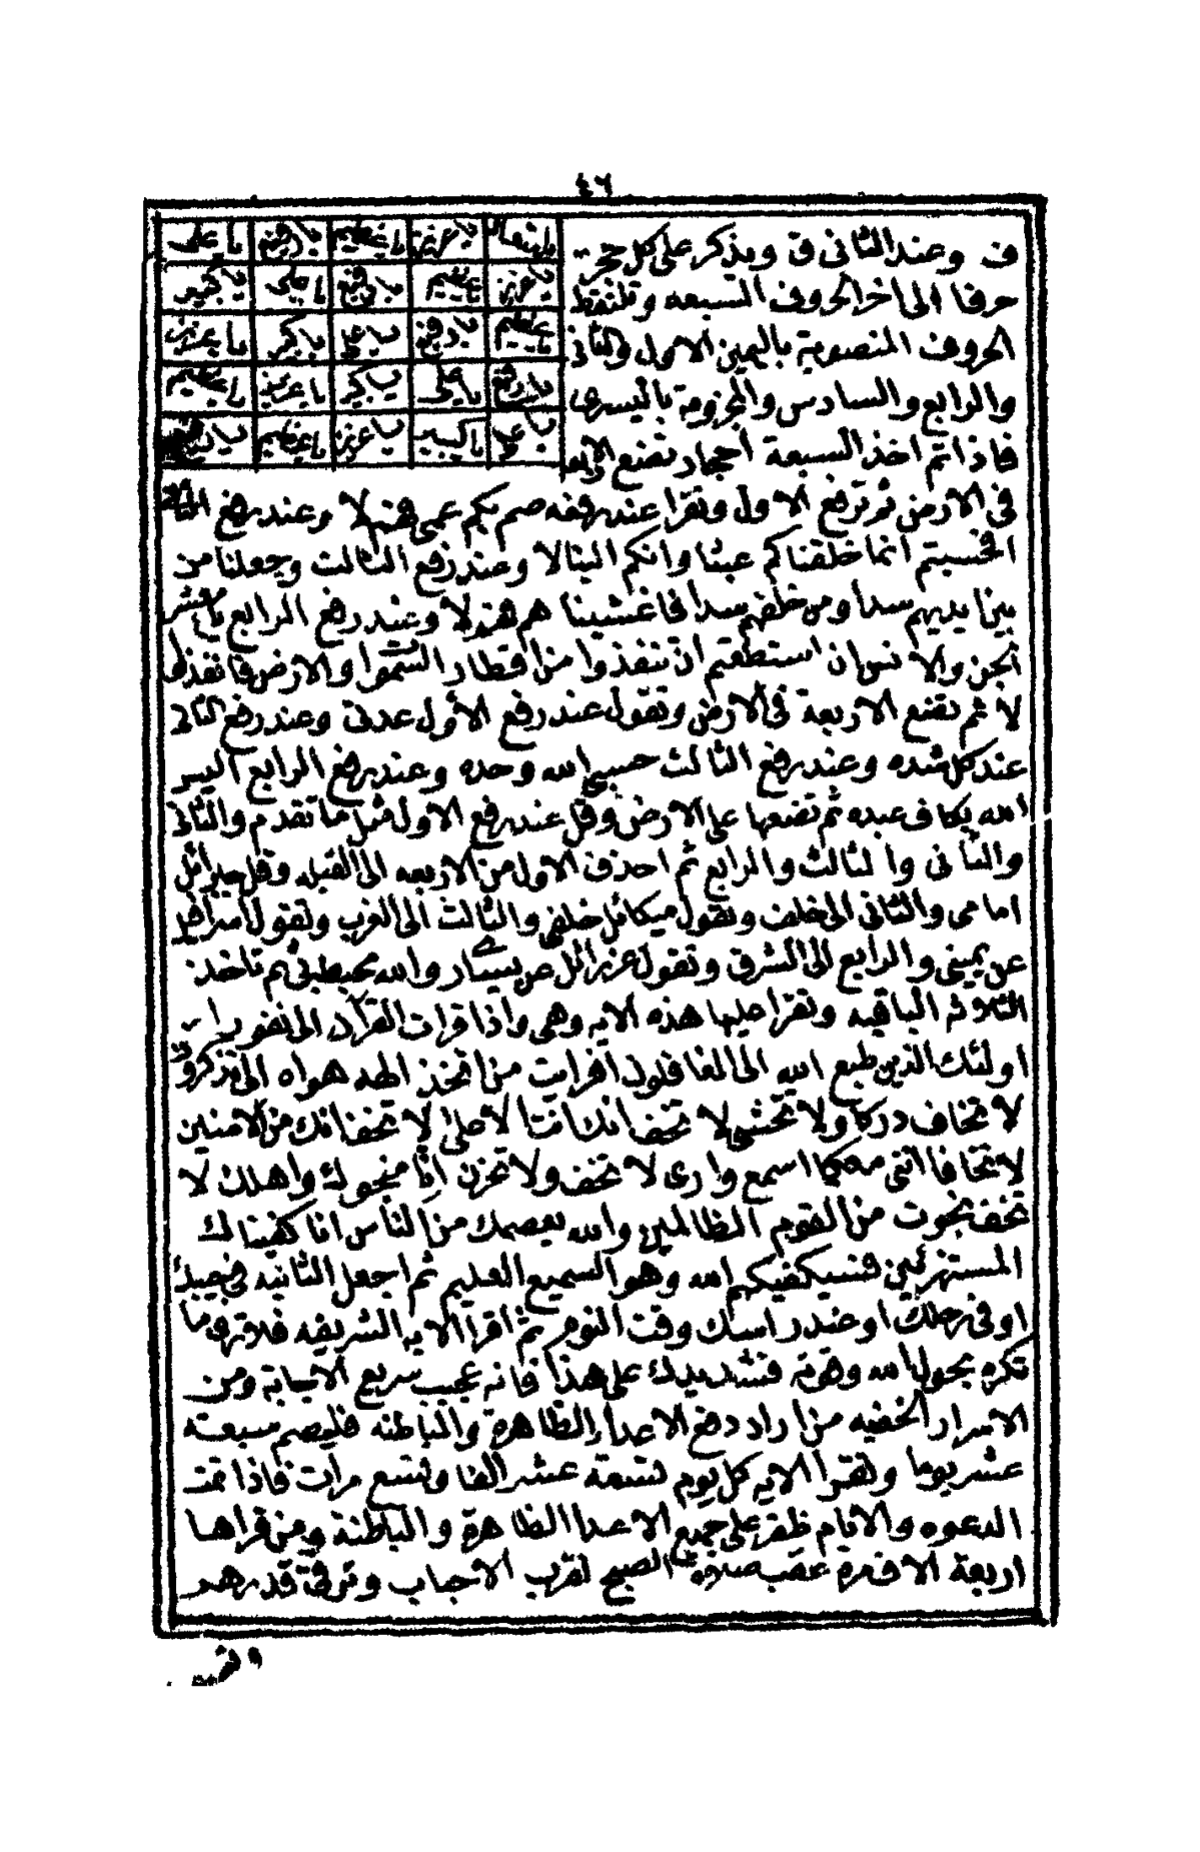 ٤٦
ف وعند الثانى ق ويذكر على كل حجر
حرفا الى اخر الحروف السبعه وتلتقط
الحروف المنصوبة باليمين الاول والثانى
والرابع والسادس والمجزومة باليسرى
فاذا تم اخذ السبعة احجار تضع الاربعه
يا على
يا رفيع
يا عظيم
يا عزيز
يا متعال
يا كبير
يا على
يا رفيع
يا عظيم
يا عزيز
يا عزيز
يا كبير
يا على
يا رفيع
يا عظيم
يا عظيم
يا عزيز
يا كبير
يا على
يا رفيع
يا عظيم
يا عزيز
يا كبير
يا على
فى الارض ثم ترفع الاول وتقرا عند رفعه صم بكم عمى فهم لا وعند رفع الثانى
افحسبتم انما خلقناكم عبثا وانكم الينا لا وعند رفع الثالث وجعلنا من
بين ايديهم سدا ومن خلفهم سدا فاغشيناهم فهم لا وعند رفع الرابع يا معشر
الجن والانس ان استطعتم ان تنفذوا من اقطار السموات والارض فانفذوا
لا ثم تضع الاربعة فى الارض وتقول عند رفع الأول عدتى وعند رفع الثانى
عند كل شده وعند رفع الثالث حسبى الله وحده وعند رفع الرابع اليس
الله بكاف عبده ثم تضعها على الارض وقل عند رفع الاول مثل ما تقدم والثانى
والثانى والثالث والرابع ثم احذف الاول من الاربعه الى القبله وقل جبرائل
امامى والثانى الى خلف وتقول ميكائل خلفى والثالث الى الغرب وتقول اسرافيل
عن يمينى والرابع الى الشرق وتقول عزرائل عن يسارى والله محيط بى ثم تاخذ
الثلاثه الباقيه وتقرا عليها هذه الايه وهى واذا قرات القرآن الى نفورا
اولئك الذين طبع الله الى الغافلون افرايت من اتخذ الهه هواه الى تذكرون
لا تخاف دركا ولا تخشى لا تخف انك انت الاعلى لا تخف انك من الامنين
لا تخافا اننى معكما اسمع وارى لا تخف ولا تحزن انا منجوك واهلك لا
تخف نجوت من القوم الظالمين والله يعصمك من الناس انا كفيناك
المستهزئين فسيكفيكهم الله وهو السميع العليم ثم اجعل الثانيه فى جيبك
او فى رحلك او عند راسك وقت النوم ثم اقرا الايه الشريفه فلا ترى ما
تكره بحول الله وقوته فشد يدك على هذا فانه عجيب سريع الاجابة ومن
الاسرار الخفيه من اراد دفع الاعداء الظاهرة والباطنه فليصم سبعة
عشر يوما وتقرا الايه كل يوم تسعة عشر الفا وتسع مرات فاذا تمت
الدعوه والايام ظفر على جميع الاعدا الظاهرة والباطنة ومن قراها
اربعة الاف مرة عقب صلاة الصبح تقرب الاحباب وترقى قدرهم